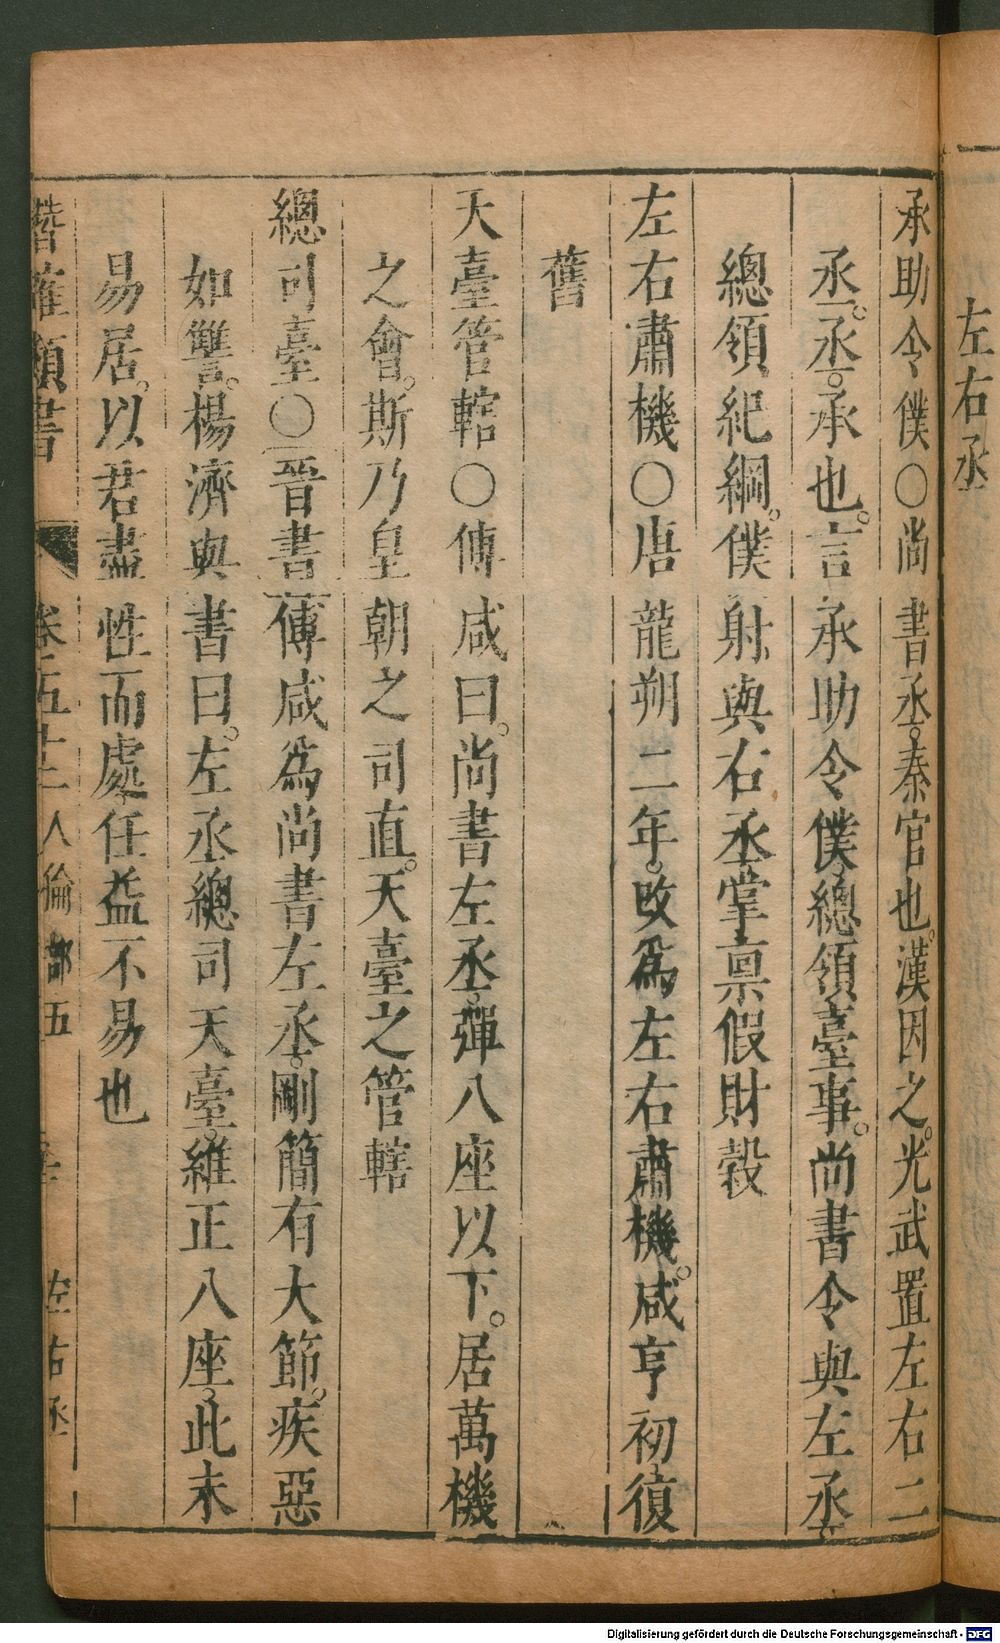 左右丞
承助令僕○尚書丞秦官也漢因之光武置左右二
丞丞承也言承助令僕總領臺事尚書令與左丞
總領紀綱僕射與右丞掌禀假財穀
左右肅機○唐龍朔二年攺爲左右肅機咸亨初復
舊
天臺管轄○傅咸曰尚書左丞彈八座以下居萬機
之會斯乃皇朝之司直天臺之管轄
總司臺○晉書傅咸爲尚書左丞剛簡有大節疾惡
如讐楊濟與書曰左丞總司天臺維正八座此未
易居以君盡性而處任益不易也
潜確類書 卷五十二 人倫部五 左右丞
Digitalisierung gefördert durch die Deutsche Forschungsgemeinschaft - DFG